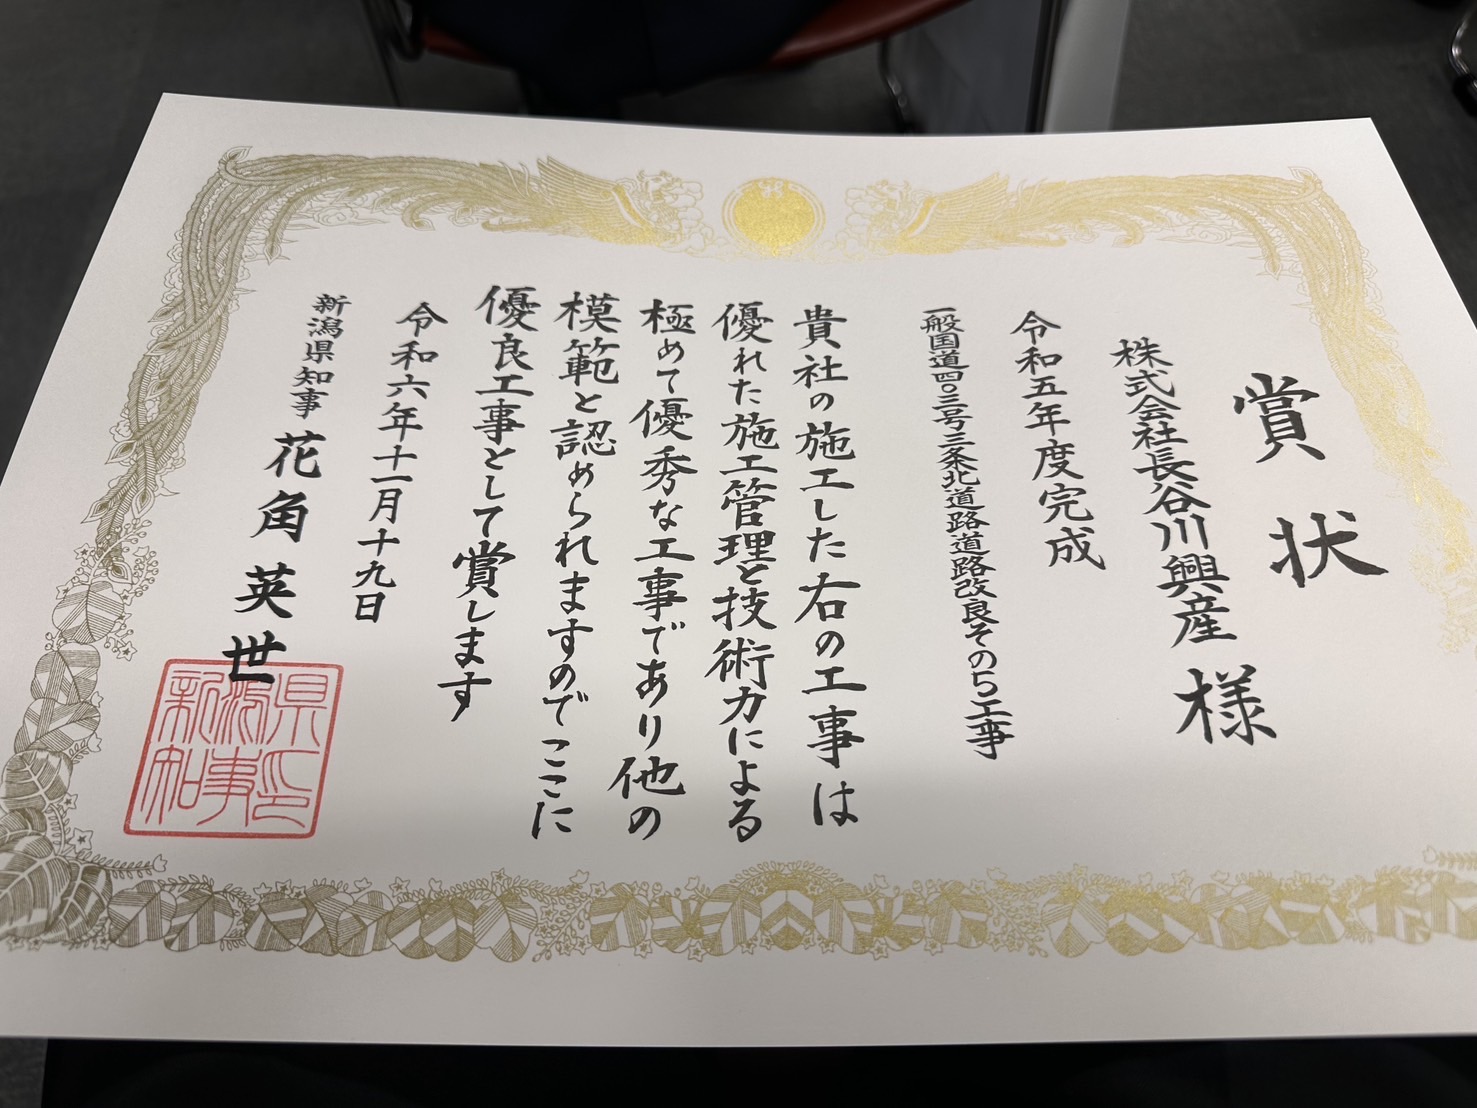 賞状
株式会社長谷川興産様
令和五年度完成
一般国道四〇三号三条北道路道路改良その5工事
貴社の施工した右の工事は
優れた施工管理と技術力による
極めて優秀な工事であり他の
模範と認められますのでここに
優良工事として賞します
令和六年十一月十九日
新潟県知事 花角英世
新潟県知事印